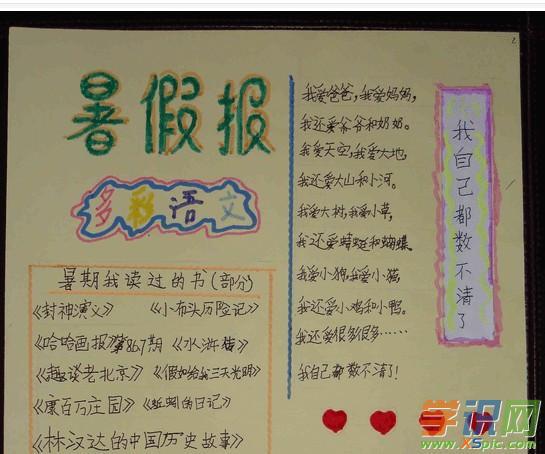 暑假报
多彩语文
暑期我读过的书(部分)
《封神演义》 《小布头历险记》
《哈哈画报》第867期 《水浒传》
《趣谈老北京》 《假如给我三天光明》
《康百万庄园》 《蚯蚓的日记》
《林汉达的中国历史故事》
2
我爱爸爸,我爱妈妈,
我还爱爷爷和奶奶。
我爱天空,我爱大地,
我还爱大山和小河。
我爱大树,我爱小草,
我还爱蜻蜓和蝴蝶。
我爱小狗,我爱小猫,
我还爱小鸡和小鸭。
我还爱很多很多……
我自己都数不清了!
我自己都数不清了
学识网
www.XSpic.com